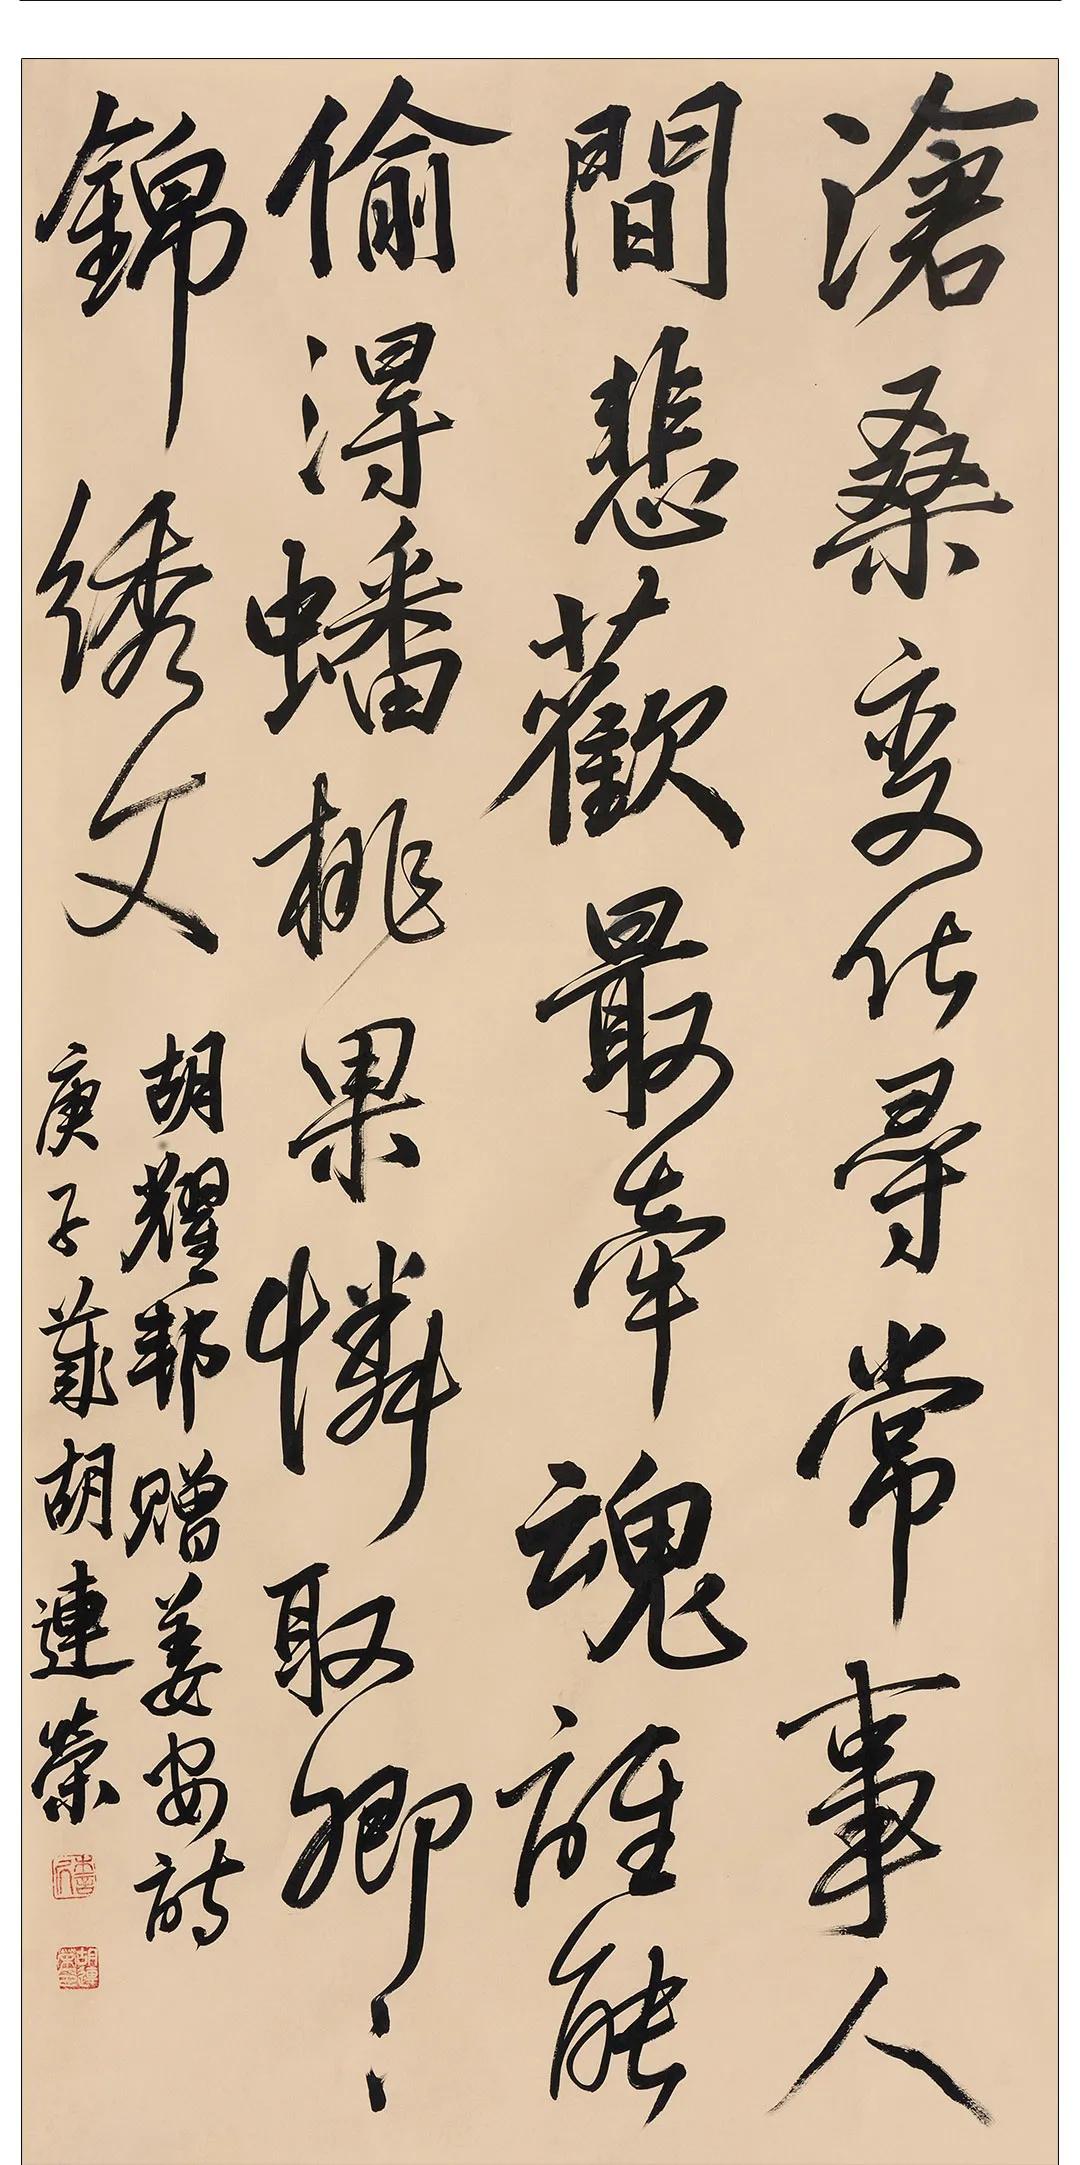 滄桑变化尋常事人
間悲歡最牽魂誰能
偷得蟠桃果憐取卿〻
錦绣文
胡耀邦赠姜安詩
庚子歲胡連榮